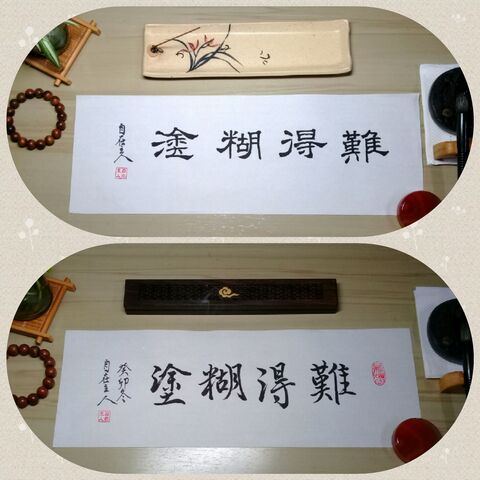 難得糊塗
自在主人
難得糊塗
癸卯冬
自在主人